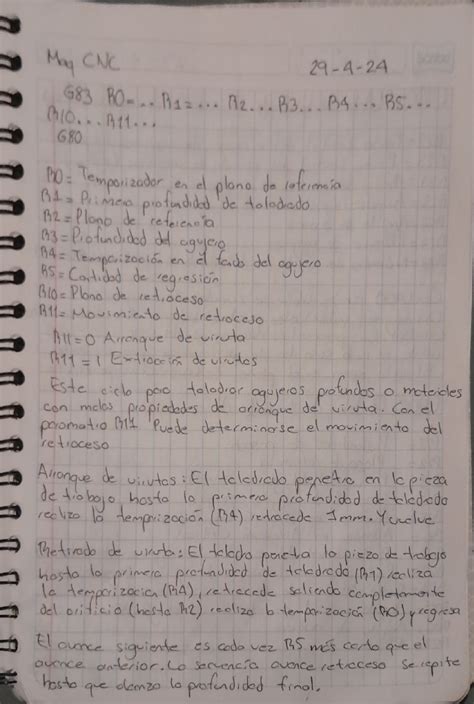 Maq CNC 29-4-24
G83 R0=... R1=... R2... R3... R4... R5...
R10... R11...
G80
R0= Temporizador en el plano de referencia
R1= Primera profundidad de taladrado
R2= Plano de referencia
R3= Profundidad del agujero
R4= Temporización en el fondo del agujero
R5= Cantidad de regresión
R10= Plano de retroceso
R11= Movimiento de retroceso
R11=0 Arranque de viruta
R11=1 Extracción de virutas
Este ciclo para taladrar agujeros profundos o materiales
con malas propiedades de arranque de viruta. Con el
parametro R11 Puede determinarse el movimiento del
retroceso
Arranque de virutas: El taladrado penetra en la pieza
de trabajo hasta la primera profundidad de taladrado
realiza la temporización (R4) retrocede 1mm. Y vuelve
Retirado de viruta: El taladro penetra la pieza de trabajo
hasta la primera profundidad de taladrado (R1) realiza
la temporizacion (R4), retrocede saliendo completamente
del orificio (hasta R2) realiza la temporización (R0) y regresa
El avance siguiente es cada vez R5 más corto que el
avance anterior. La secuencia avance retroceso se repite
hasta que alcanza la profundidad final.